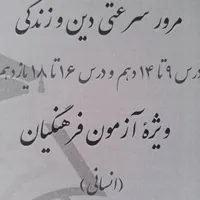 مرور سرعتی دین و زندگی
درس ۹ تا ۱۴ دهم و درس ۱۶ تا ۱۸ یازدهم
ویژهٔ آزمون فرهنگیان
(انسانی)